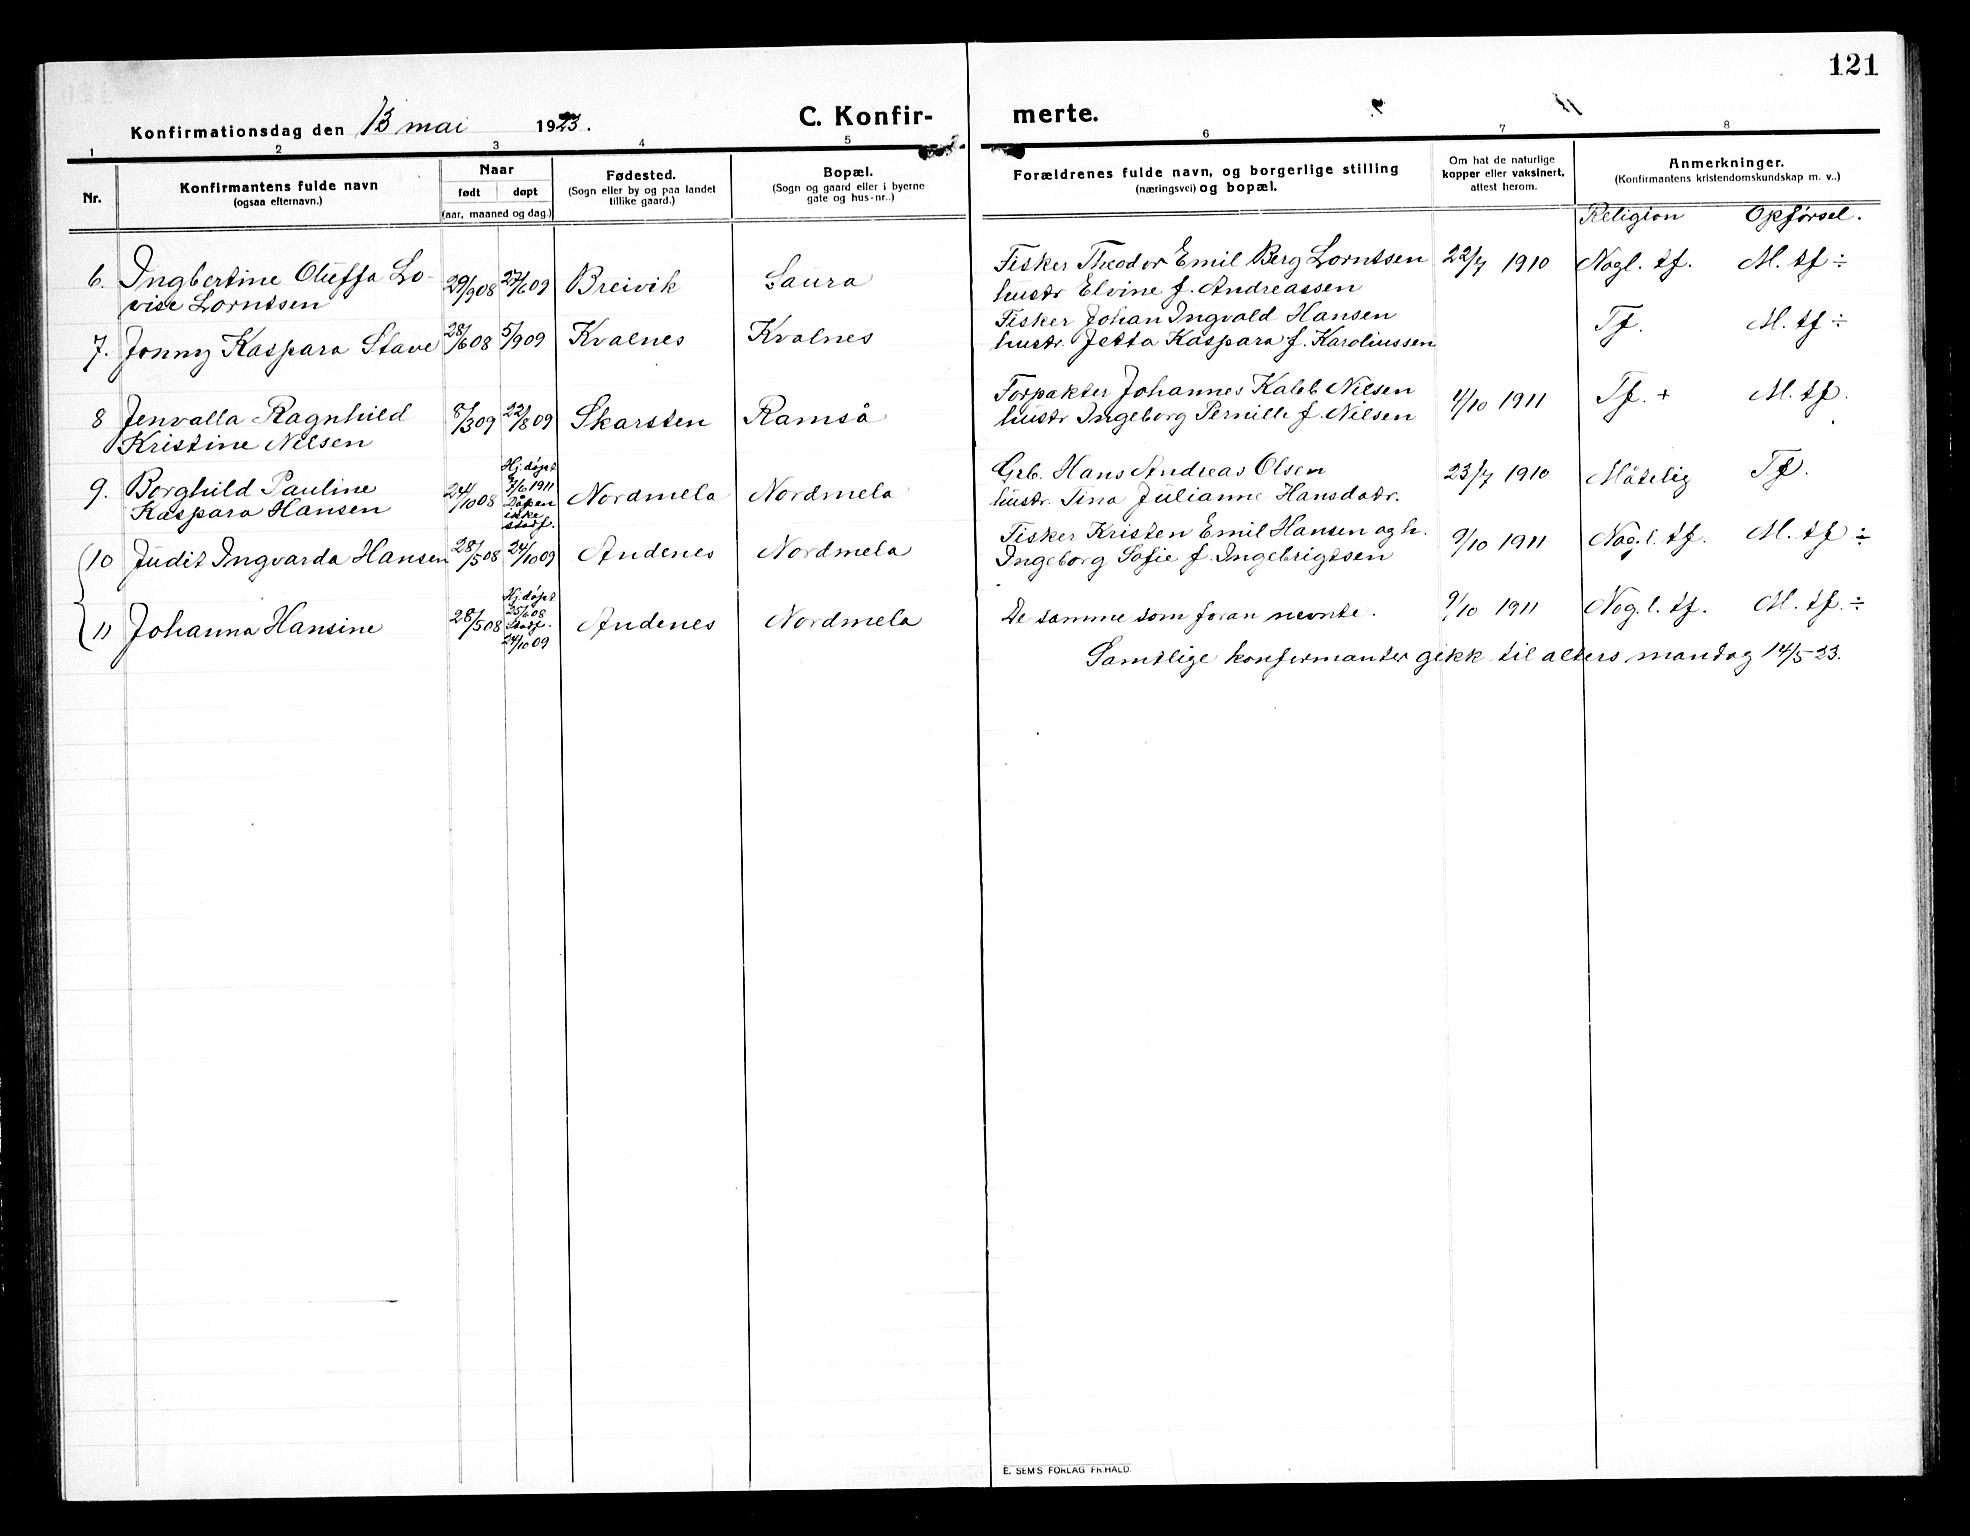 121
Konfirmationsdag den 13 mai 1923. C. Konfirmerte.
1 2 3 4 5 6 7 8
Nr. Konfirmantens fulde navn (ogsaa efternavn.) Naar født døpt (aar, maaned og dag.) Fødested. (Sogn eller by og paa landet tillike gaard.) Bopæl. (Sogn og gaard eller i byerne gate og hus-nr..) Forældrenes fulde navn, og borgerlige stilling (næringsvei) og bopæl. Om hat de naturlige kopper eller vaksinert, attest herom. Anmerkninger. (Konfirmantens kristendomskundskap m. v..)
Religion Opførsel.
6. Ingbertine Oluffa Lo- 29/9 08 27/6 09 Breivik Saura Fisker Theodor Emil Berg Lorntsen 22/7 1910 Nogl. tf. M. tf ÷
vise Lorntsen hustr Elvine f. Andreassen
7. Jonny Kaspara Stave 28/6 08 5/9 09 Kvalnes Kvalnes Fisker Johan Ingvald Hansen Tf. M. tf ÷
hustr. Jetta Kaspara f. Karoliussen
8 Jenvalla Ragnhild 8/3 09 22/8 09 Skarsten Ramså Forpakter Johannes Kaleb Nilsen 4/10 1911 Tf. + M. tf.
Kristine Nilsen hustr Ingeborg Pernille f. Nilsen
9. Borghild Pauline 24/10 08 Hj. døpt 7/6 1911 Dåpen ikke stadf. Nordmela Nordmela Grb. Hans Andreas Olsen 23/7 1910 Måtelig Tf.
Kaspara Hansen hustr. Tina Julianne Hansdatr.
10 Judit Ingvarda Hansen 28/5 08 24/10 09 Andenes Nordmela Fisker Kristen Emil Hansen og h. 9/10 1911 Nog. l. tf. M. tf ÷
Ingeborg Sofie f. Ingebrigtsen
11 Johanna Hansine 28/5 08 Hj. døpt 25/6 08 Stadf. 24/10 09 Andenes Nordmela De samme som foran nevnte. 9/10 1911 Nog. l. tf. M. tf. ÷
Samtlige konfirmanter gikk til alters mandag 14/5 23.
E. SEM'S FORLAG FR.HALD.